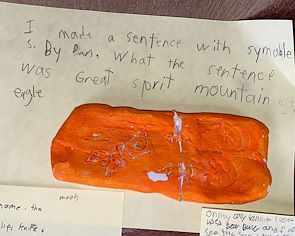 I made a sentence with symble
s. By Dan. What the sentence
was Great sprit mountain
eagle
moth
name, the
knife.
On my clay tablet I
was